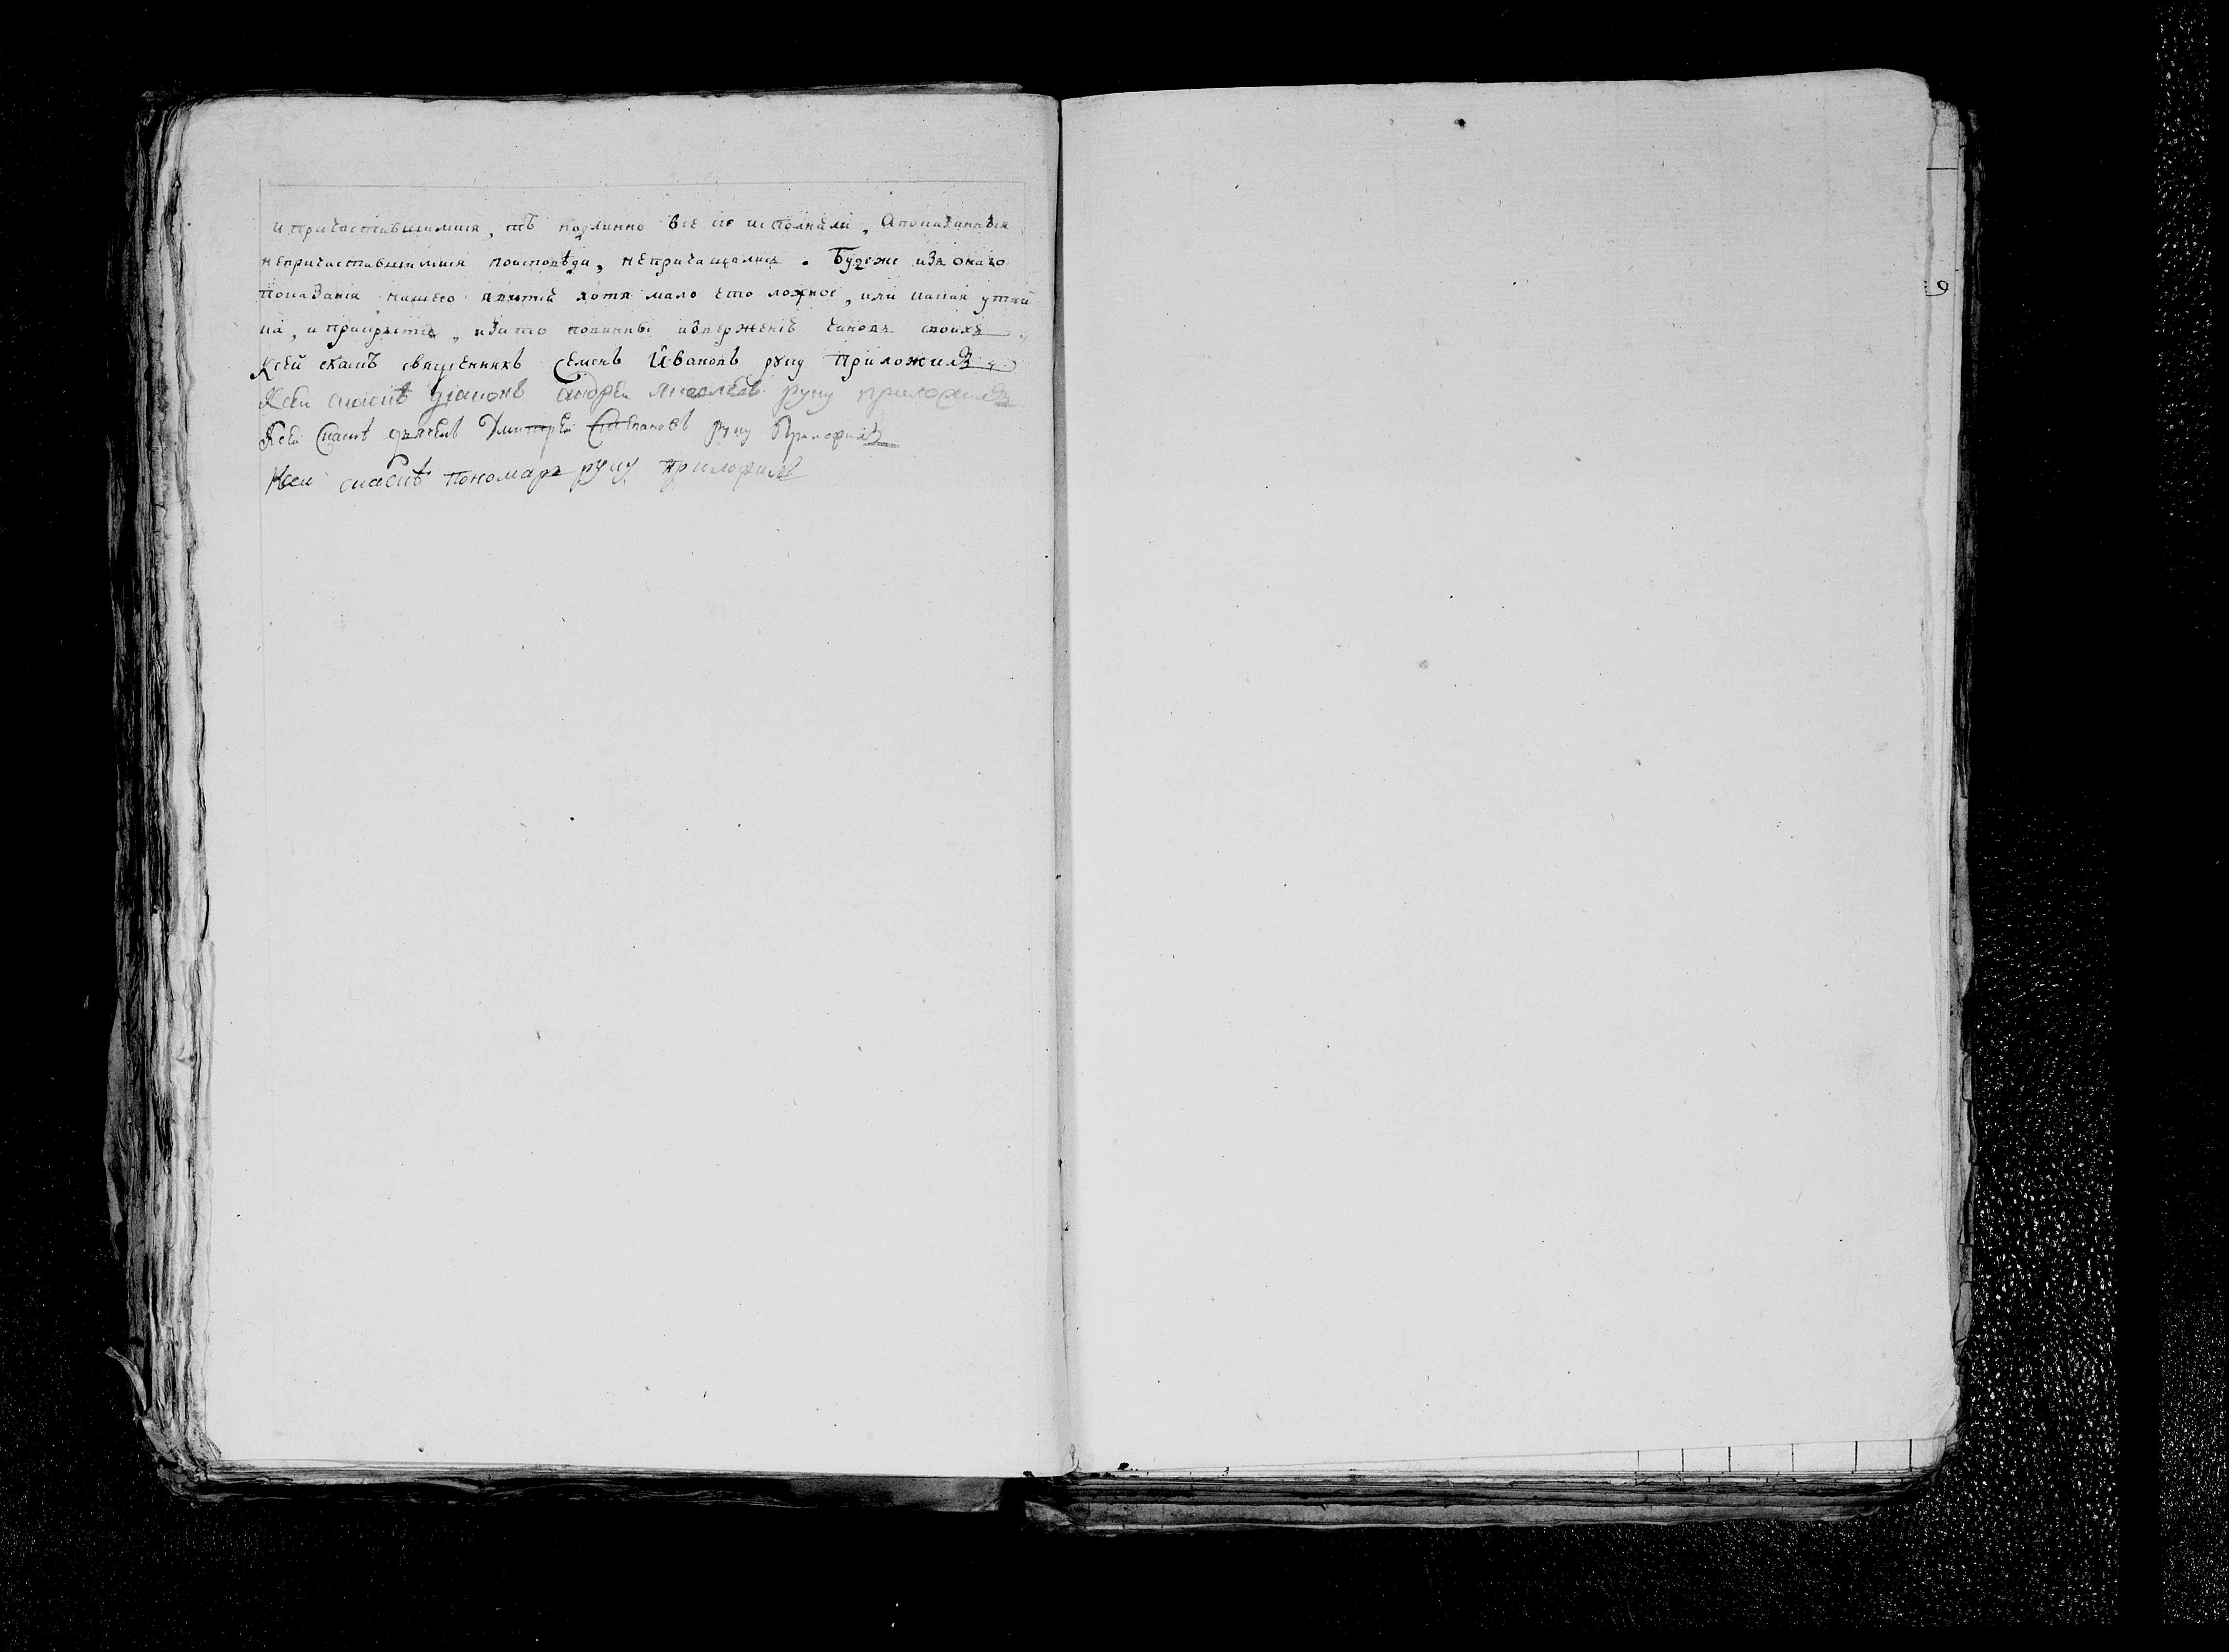 и причастившимися, тѣ подлинно все сие исполнили, А показанныя
непричастившимися по исповѣди, не причащались. Буде же изъ онаго
показания нашего явитъ хотя мало что ложное, или какая утай
ка, и прикрытие, и за то повинны извержению чиновъ своихъ.
К сей сказкѣ священникъ Семенъ Ивановъ руку приложилъ
К сей сказкѣ диаконъ андреи яковлевъ руку приложилъ
К сей сказкѣ дьячекъ Димитреи Степановъ руку приложилъ
К сеи сказкѣ пономарь руку приложилъ